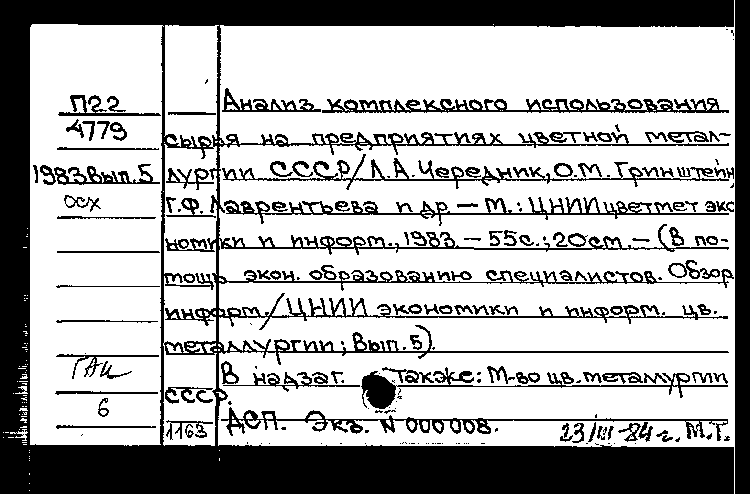 П22
4779
1983 Вып. 5
осх
Анализ комплексного использования
сырья на предприятиях цветной метал-
лургии СССР / Л. А. Чередник, О. М. Гринштейн,
Г. Ф. Лаврентьева и др. — М.: ЦНИИцветмет эко
номики и информ., 1983. — 55 с.; 20 см. — (В по-
мощь экон. образованию специалистов. Обзор
информ. / ЦНИИ экономики и информ. цв.
металлургии; Вып. 5).
В надзаг. также: М-во цв. металлургии
СССР.
ДСП. Экз. N 000008.
6
1163
23/III-84 г. М.Т.